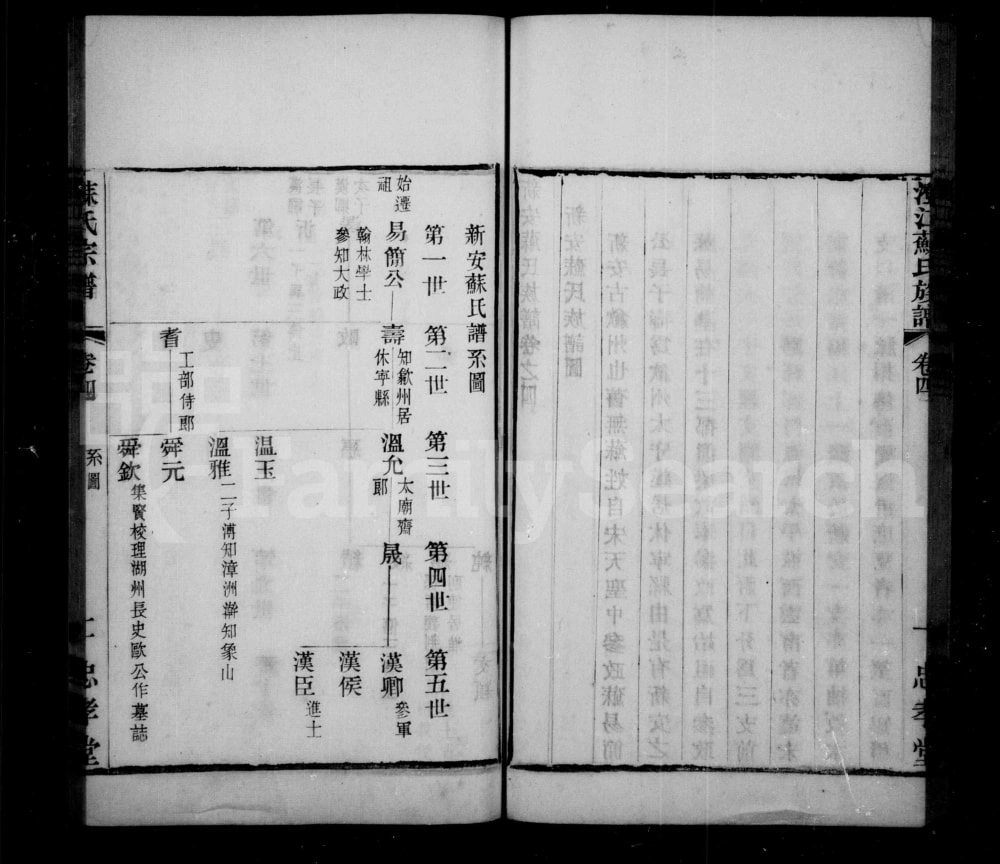 蘇氏族譜
卷四
一
忠孝堂
新安蘇氏譜系圖
第一世
第二世
第三世
第四世
第五世
始遷祖
易簡公
翰林學士
參知大政
壽
知歙州居
休寧縣
溫允
太廟齋郎
晟
漢卿
參軍
漢侯
漢臣
進士
温玉
溫雅
二子溥知漳洲澣知象山
耆
工部侍郎
舜元
舜欽
集賢校理湖州長史歐公作墓誌
蘇氏宗譜
卷四
系圖
忠孝堂
FamilySearch